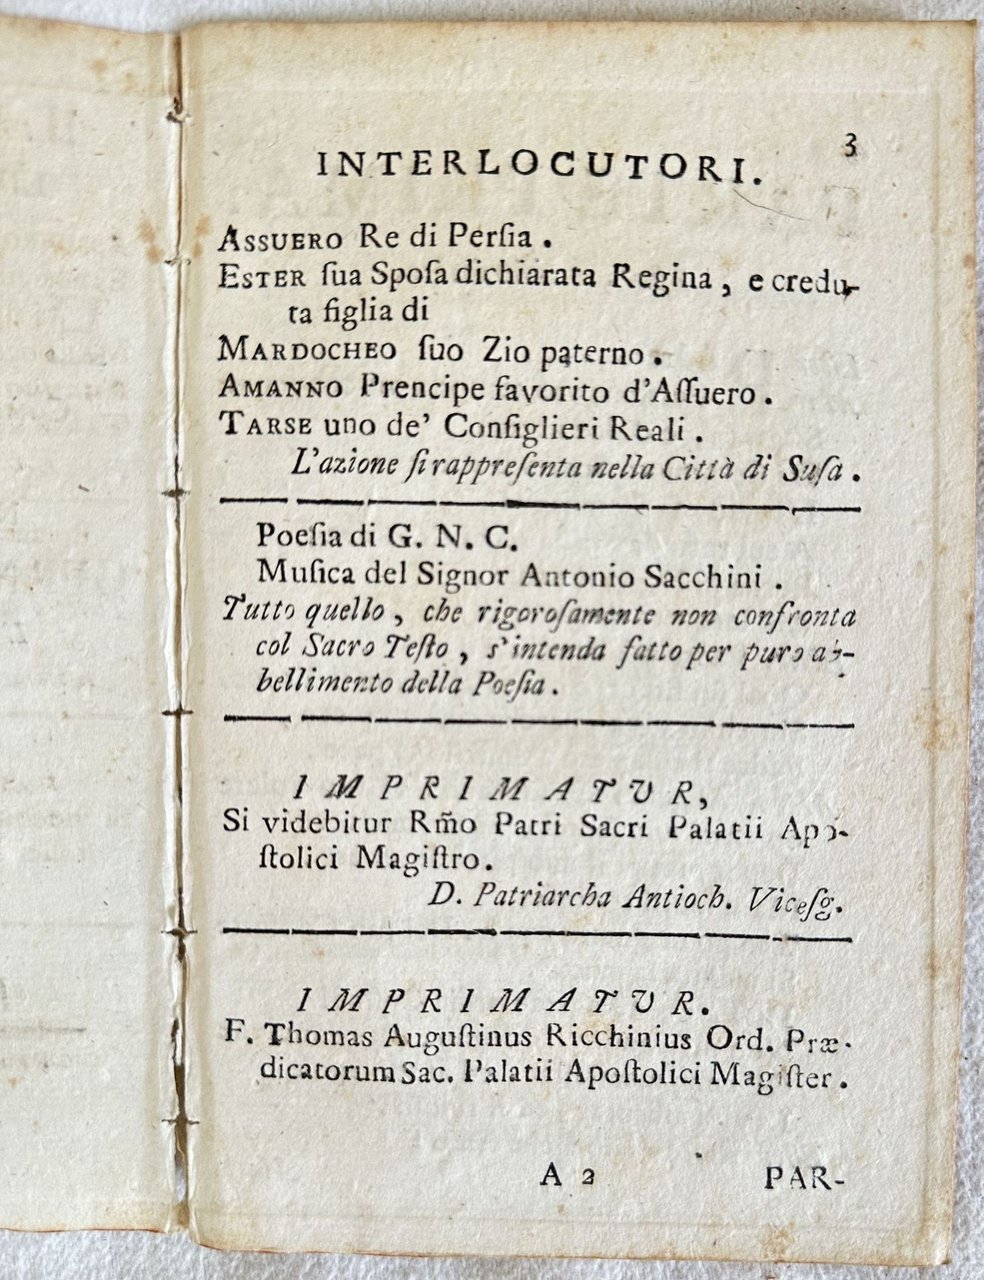 3
INTERLOCUTORI.
ASSUERO Re di Perſia .
ESTER ſua Spoſa dichiarata Regina , e credu-
ta figlia di
MARDOCHEO ſuo Zio paterno .
AMANNO Prencipe favorito d'Aſſuero .
TARSE uno de' Conſiglieri Reali .
L'azione ſi rappreſenta nella Città di Suſa .
Poeſia di G. N. C.
Muſica del Signor Antonio Sacchini .
Tutto quello , che rigoroſamente non confronta
col Sacro Teſto , s'intenda fatto per puro ab-
bellimento della Poeſia .
IMPRIMATVR,
Si videbitur Rm̃o Patri Sacri Palatii Apo-
ſtolici Magiſtro .
D. Patriarcha Antioch. Viceſg.
IMPRIMATVR.
F. Thomas Auguſtinus Ricchinius Ord. Præ-
dicatorum Sac. Palatii Apoſtolici Magiſter .
A 2
PAR-